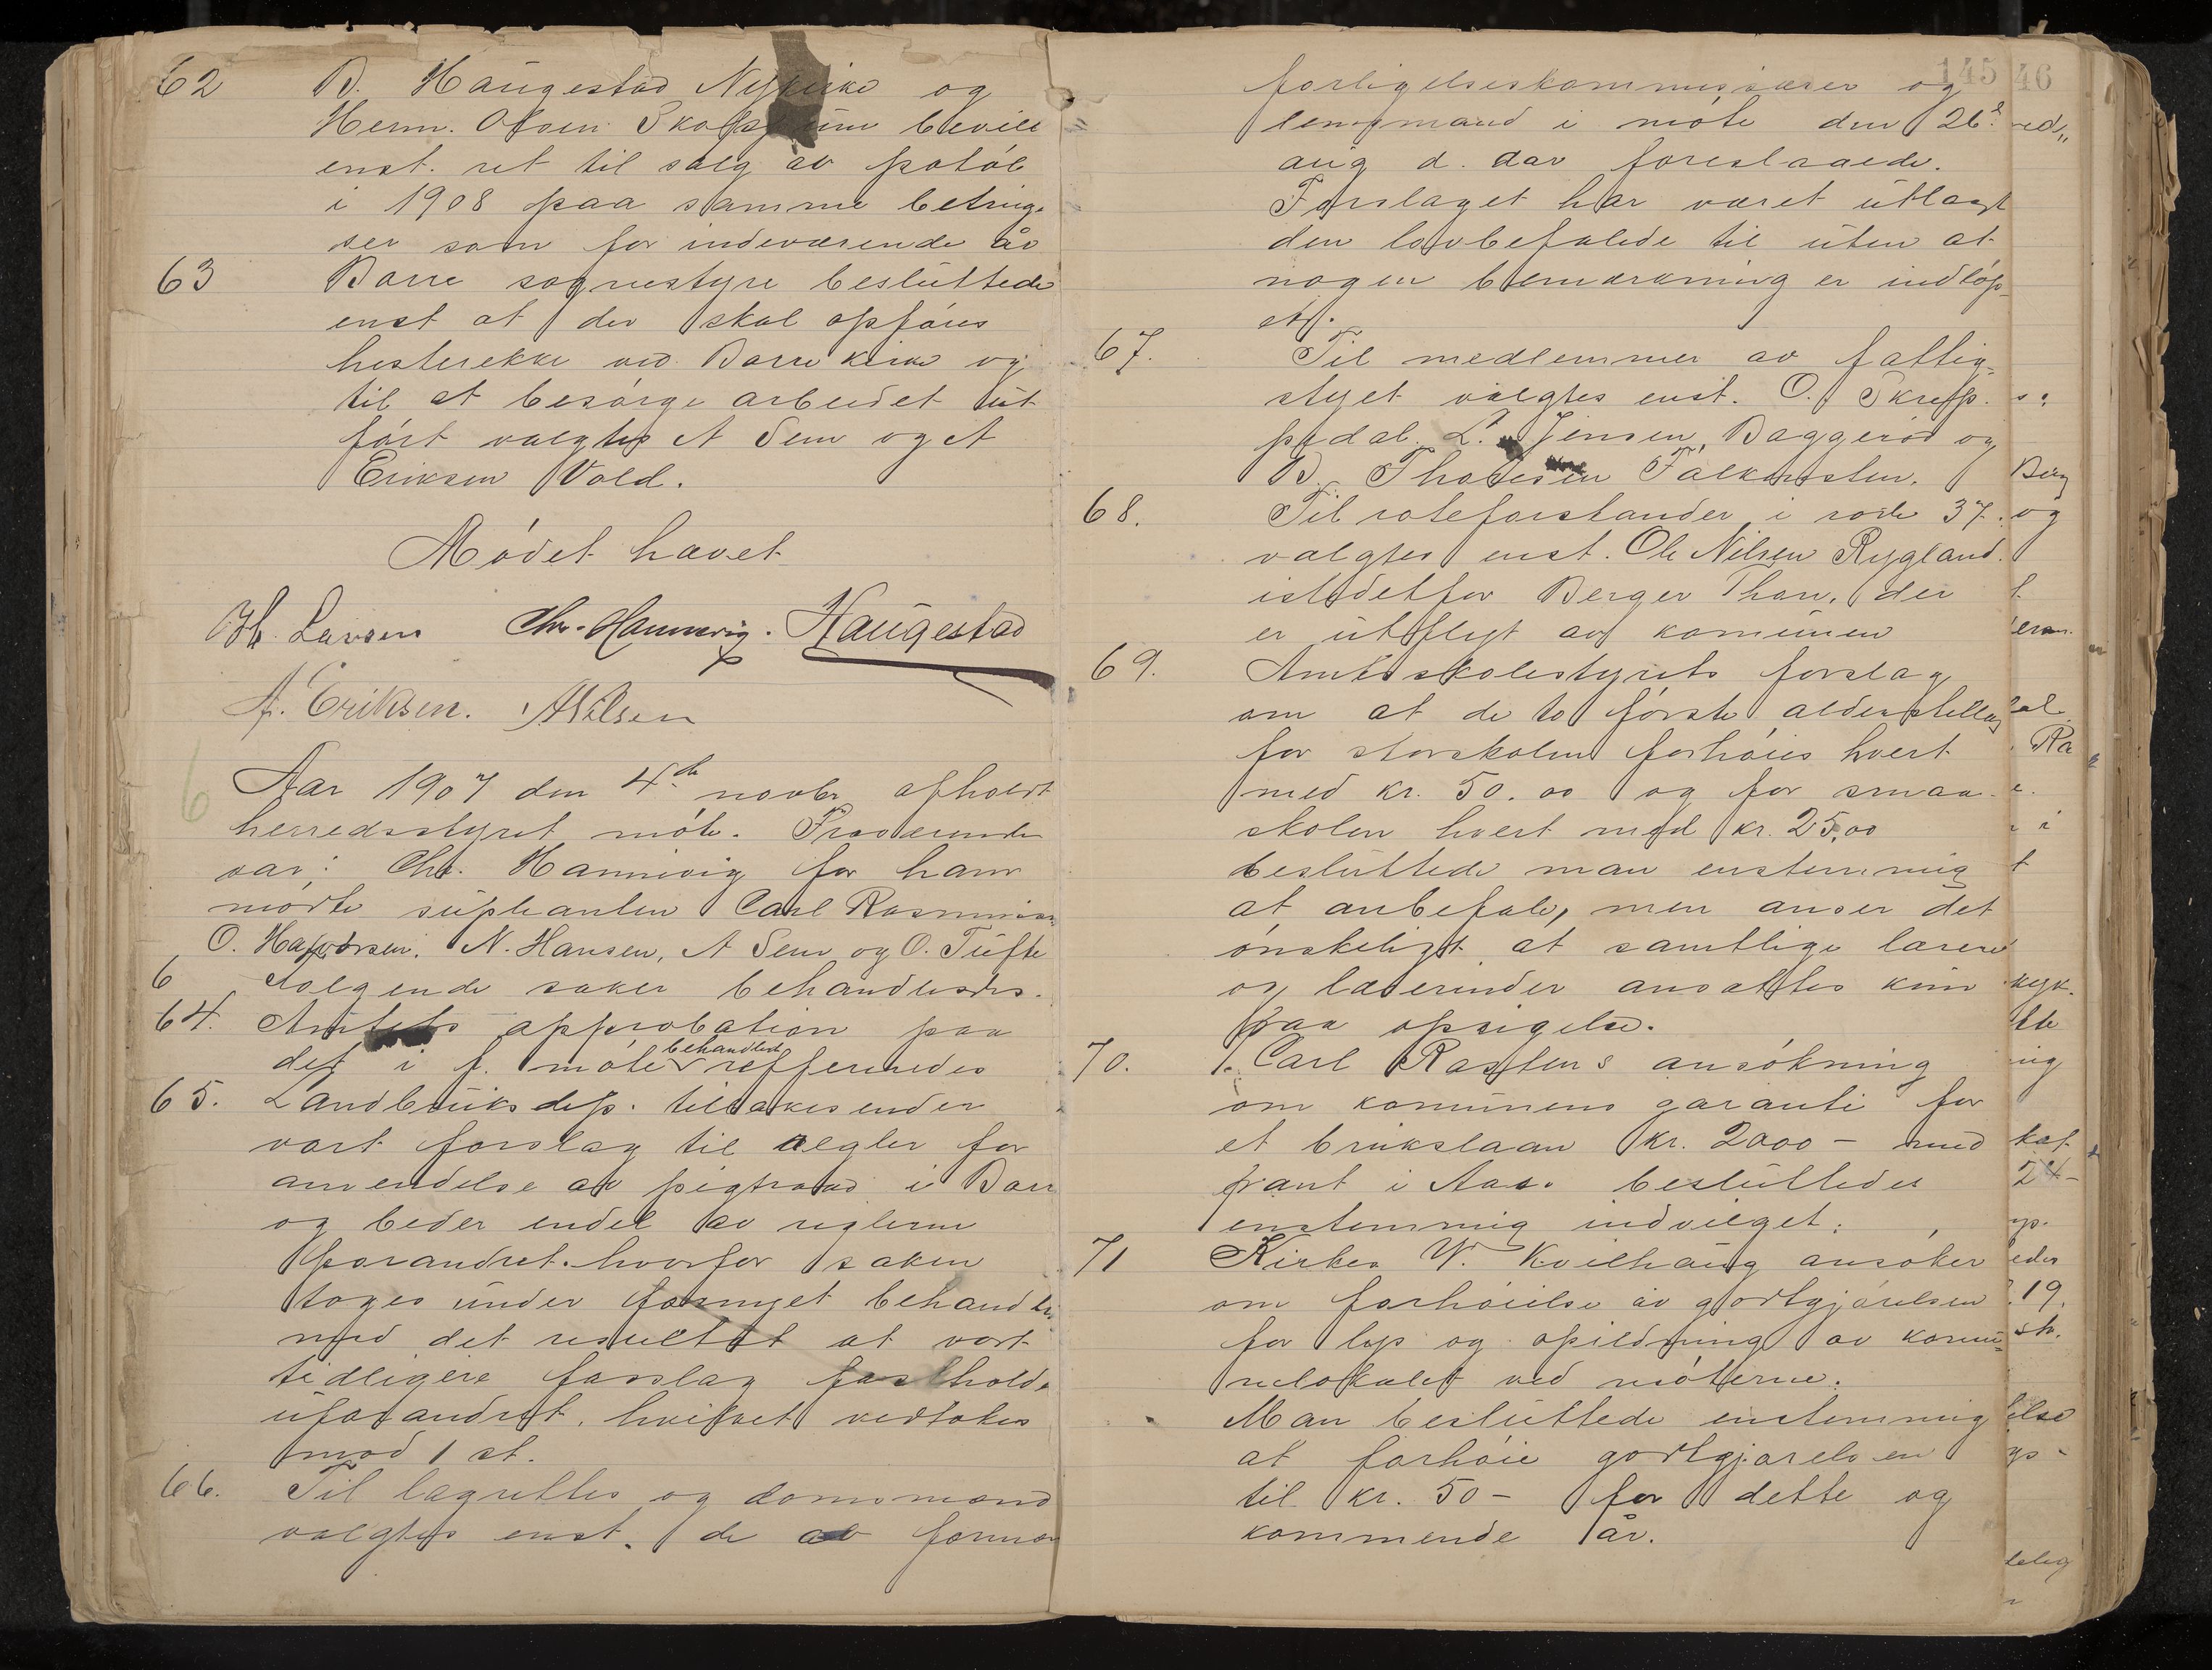 62 B. Haugestad Nykirke og
Herm. Olsen Skopum bevill
enst. ret til salg av patøl
i 1908 paa samme beting.
ser som for indeværende år
63 Borre sognestyre besluttede
enst at der skal opføres
hesterekke ved Borre kirke og
til at besørge arbeidet ut
ført valgtes A Sem og A
Eriksen Vold.
Mødet hævet
H. Larsen Chr. Hannevig. Haugestad
A. Eriksen. A Nilsen
6
Aar 1907 den 4de novbr afholdt
herredsstyret møte. Fraværende
var: Chr. Hannevig for ham
mødte supleanten Carl Rasmussen
O. Halvorsen, N. Hansen, A Sem og O. Tufte
6 Følgende saker behandledes.
64. Amtets approbation paa
det i f. møte behandlede refferertes
65. Landbruksdep. tilbakesender
vort forslag til regler for
anvendelse av pigtraad i Borre
og beder endel av reglerne
forandret. hvorfor saken
toges under fornyet behandl.
med det resultat at vort
tidligere forslag fastholdes
uforandret, hvilket vedtokes
mod 1 st.
66. Til lagrettes og domsmænd
valgtes enst. de av forman
145
forligelseskommissærer og
lensmand i møte den 26d
aug d. aar foreslaaede.
Forslaget har været utlagt
den lovbefalede tid uten at
nogen bemerkning er indløp
et.
67. Til medlemmer av fattig-
styret valgtes enst. O. Skrep-
pedal. L. Jensen, Baggerød og
B. Thoresen Falkensten.
68. Til roteforstander i rode 37.
valgtes enst. Ole Nilsen Rygland.
istedetfor Berger Thon, der
er utflygt av komunen
69. Amtsskolestyrets forslag
om at de to første alderstillæg
for storskolen forhøies hvert
med kr. 50.00 og for smaa-
skolen hvert med kr. 25,00
besluttede man enstemmig
at anbefale, men anser det
ønskeligt at samtlige lærere
og lærerinder ansattes kun
paa opsigelse.
70. Carl Rastens ansøkning
om komunens garanti for
et brukslaan kr. 2000 – med
pant i Aas. besluttedes
enstemmig indvilget.
71 Kirkes. W. Kvilhaug ansøker
om forhøielse av godtgjørelsen
for lys og opildning av komu-
nelokalet ved møterne.
Man besluttede enstemmig
at forhøie godtgjørelsen
til kr. 50 – for dette og
kommende år.
46
og
Ra
24-
19.